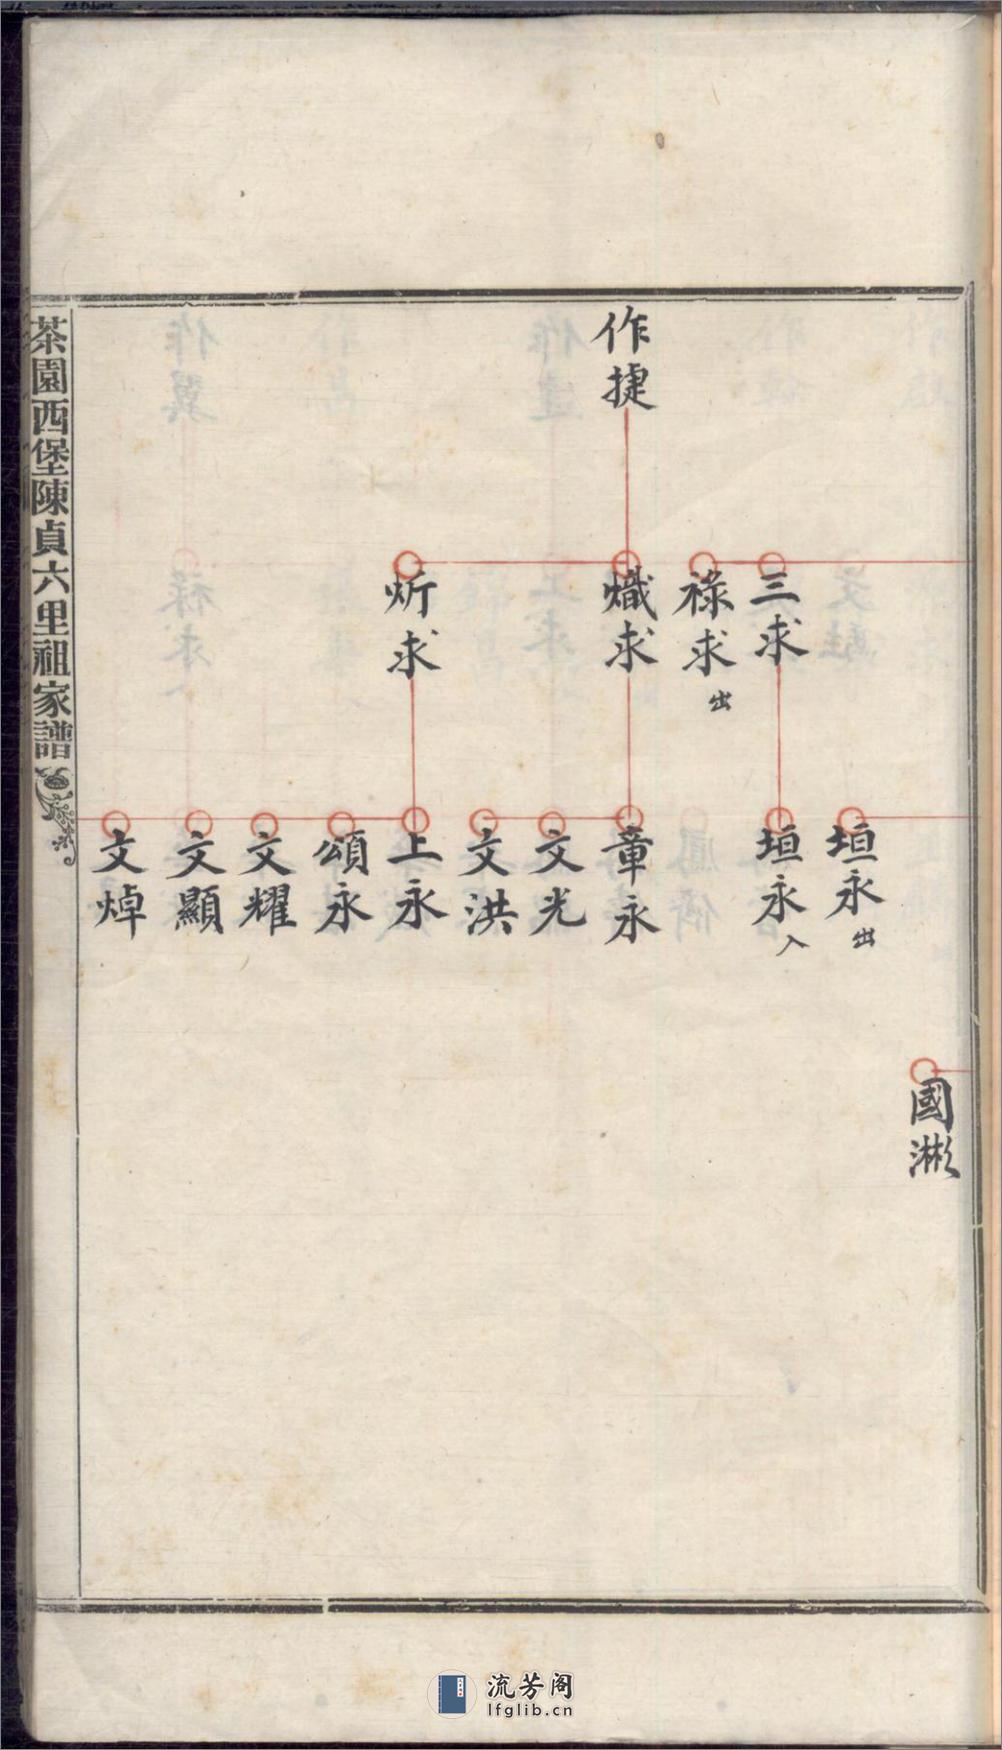 作捷
三求
祿求出
熾求
炘求
垣永出
垣永入
章永
文光
文洪
上永
頌永
文耀
文顯
文焯
國漵
茶園西堡陳貞六里祖家譜
流芳阁
lfglib.cn